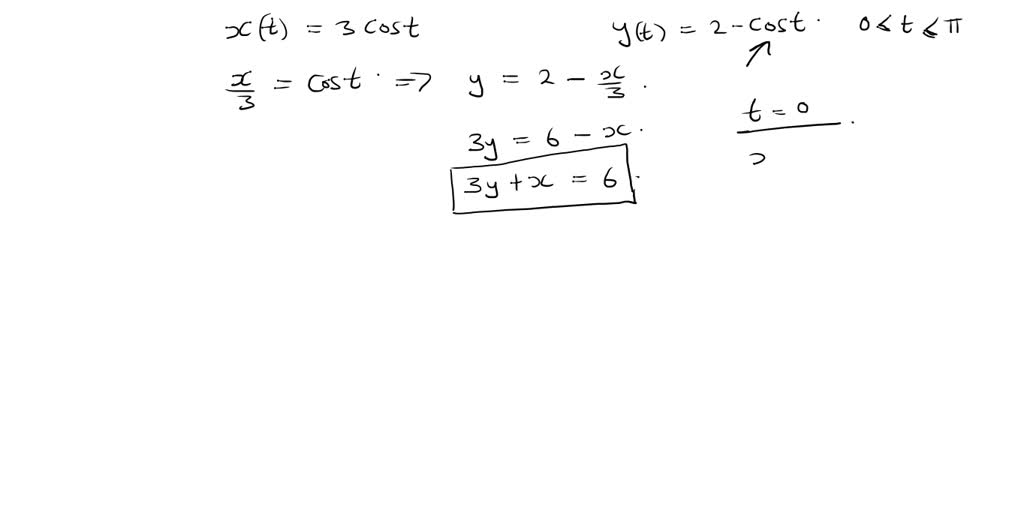 x(t) = 3 cost
y(t) = 2 - cost. 0 ≤ t ≤ π
x/3 = cost. => y = 2 - x/3.
3y = 6 - x.
3y + x = 6.
t = 0.
x